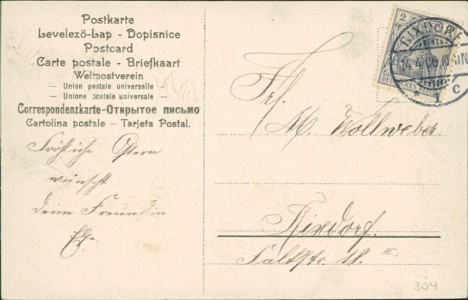 Postkarte
Levelező-Lap - Dopisnice
Postcard
Carte postale - Briefkaart
Weltpostverein
— Union postale universelle —
— Unione postale universale —
Correspondenzkarte-Открытое письмо
Cartolina postale – Tarjeta Postal.
Fröhliche Ostern
wünscht
deine Freundin
2
RIXDORF
14.4.06
C
Frl.
M. Wollweber.
Rixdorf.
18 III.
304